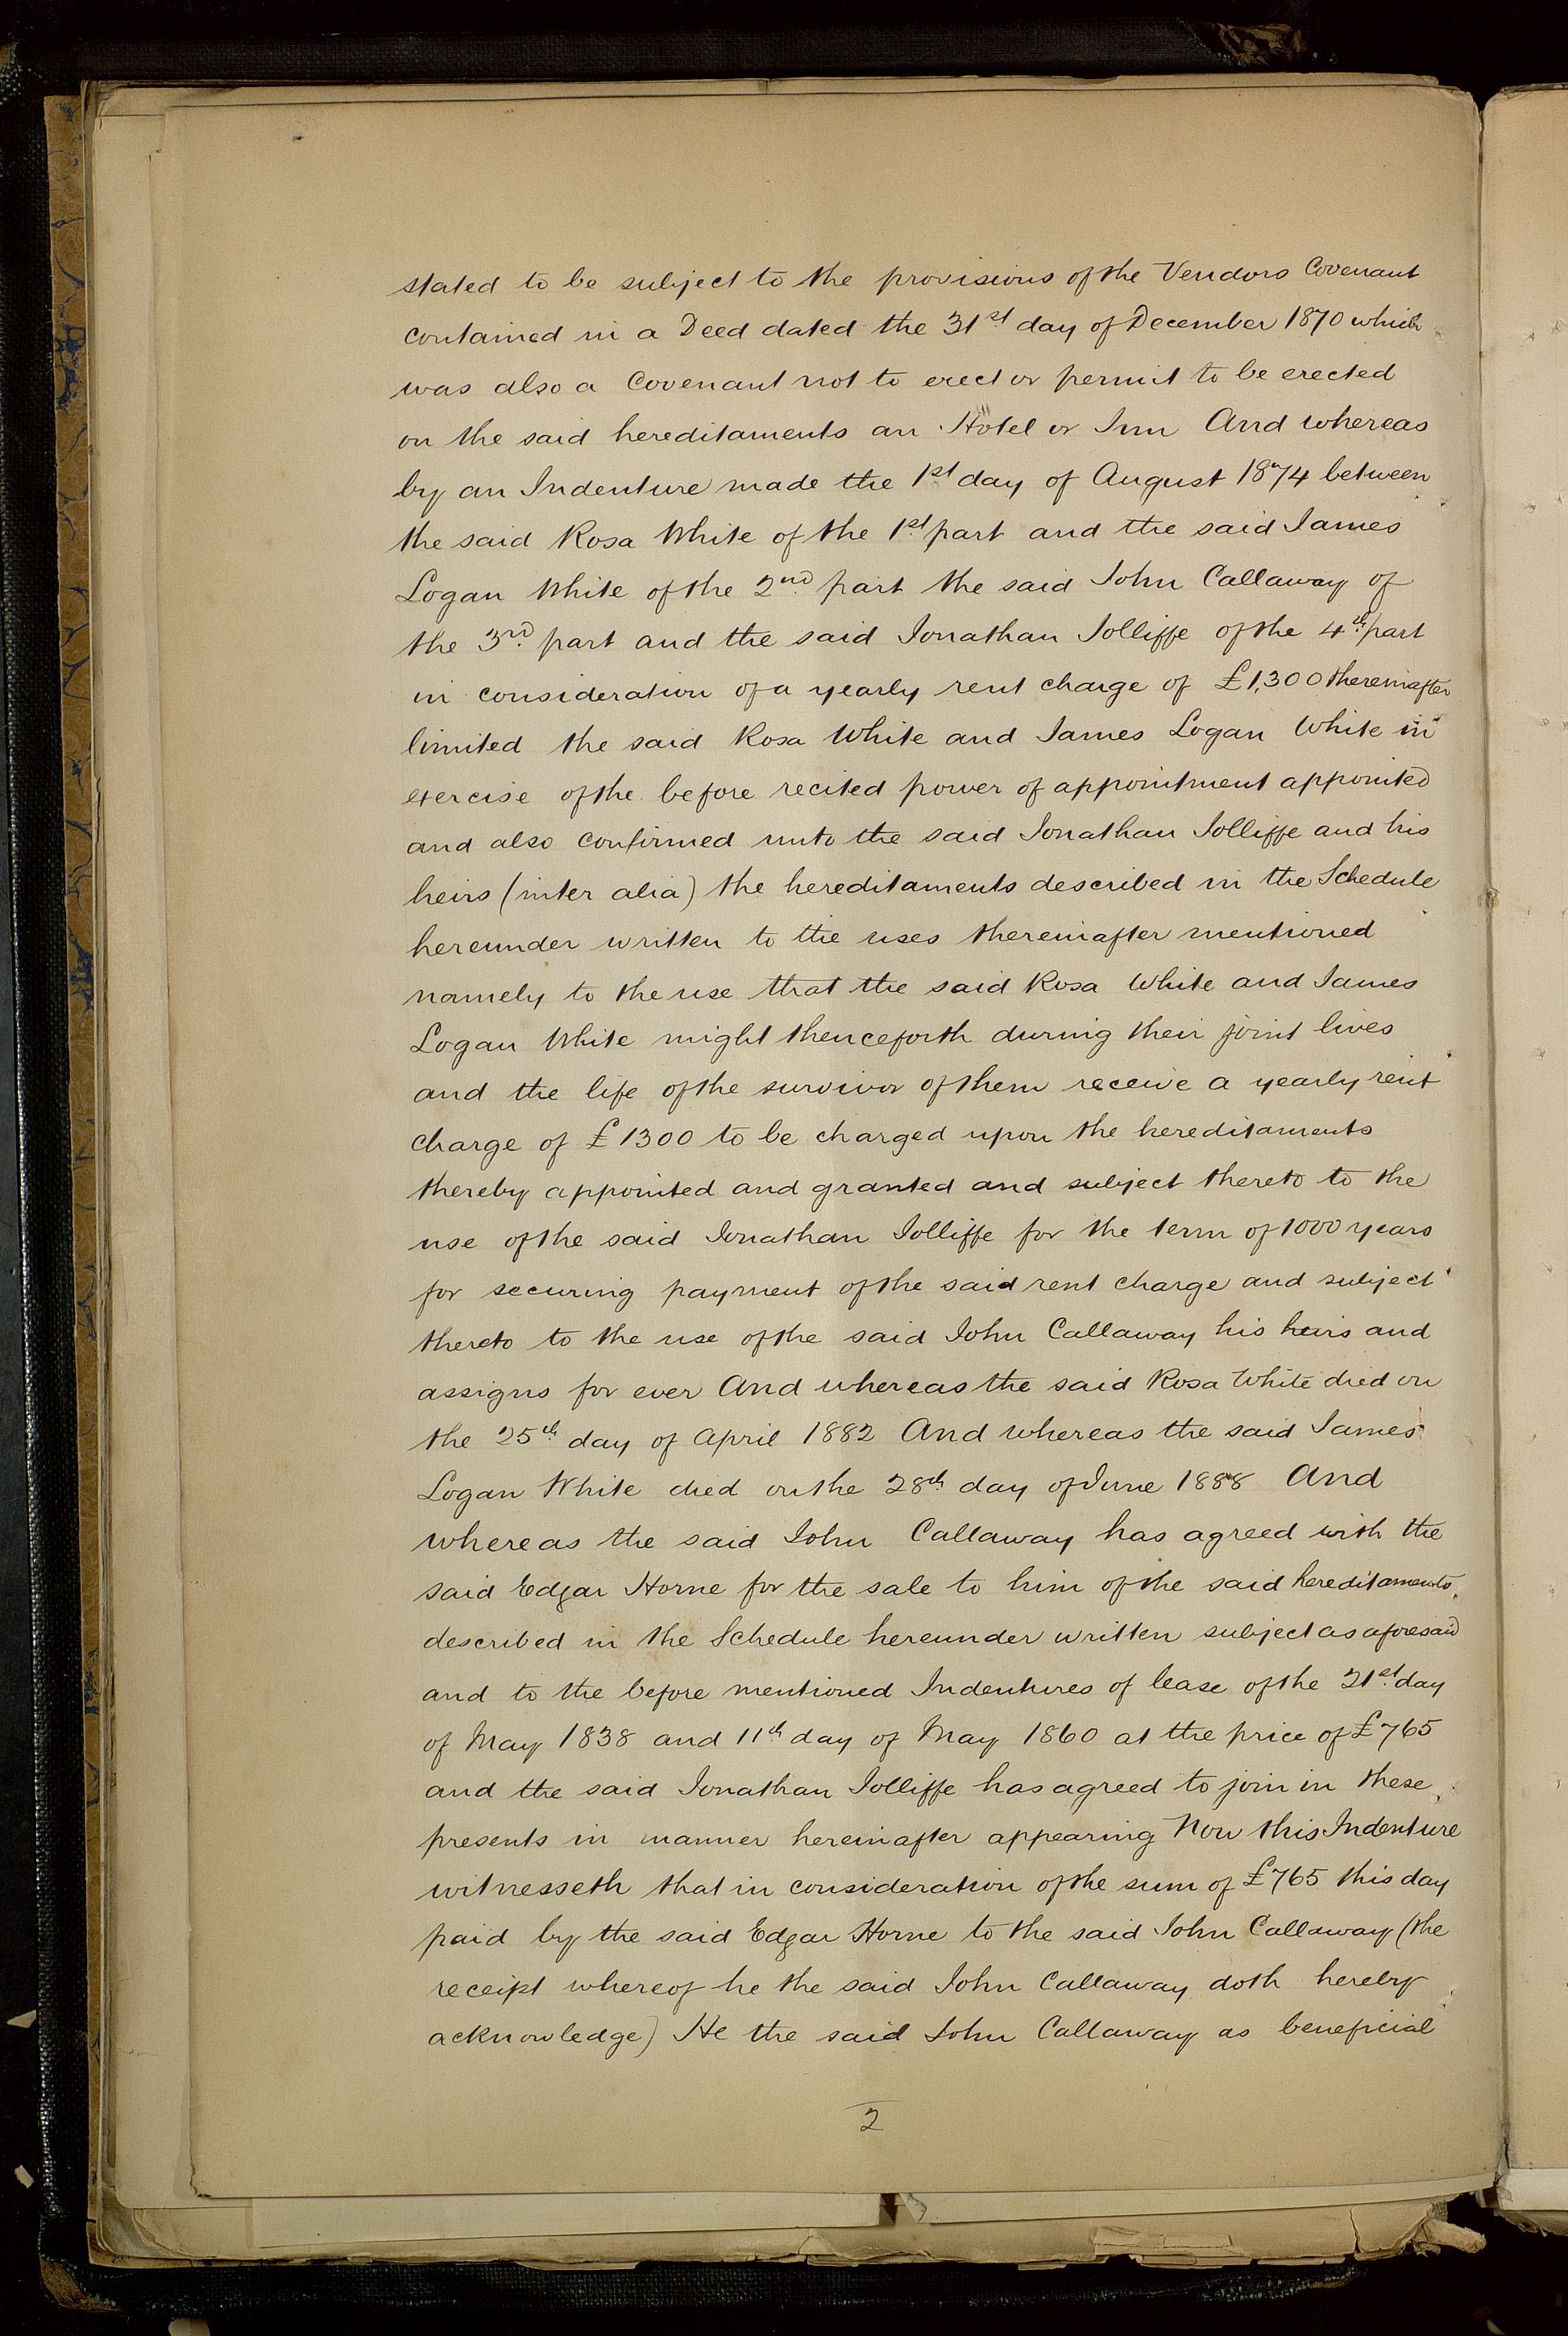 stated to be subject to the provisions of the Vendors Covenant
contained in a Deed dated the 31st day of December 1870 which
was also a Covenant not to erect or permit to be erected
on the said hereditaments an Hotel or Inn And whereas
by an Indenture made the 1st day of August 1874 between
the said Rosa White of the 1st part and the said James
Logan White of the 2nd part the said John Callaway of
the 3rd part and the said Jonathan Jolliffe of the 4th part
in consideration of a yearly rent charge of £1,300 thereinafter
limited the said Rosa White and James Logan White in
exercise of the before recited power of appointment appointed
and also confirmed unto the said Jonathan Jolliffe and his
heirs (inter alia) the hereditaments described in the Schedule
hereunder written to the uses thereinafter mentioned
namely to the use that the said Rosa White and James
Logan White might thenceforth during their joint lives
and the life of the survivor of them receive a yearly rent
charge of £1300 to be charged upon the hereditaments
thereby appointed and granted and subject thereto to the
use of the said Jonathan Jolliffe for the term of 1000 years
for securing payment of the said rent charge and subject
thereto to the use of the said John Callaway his heirs and
assigns for ever And whereas the said Rosa White died on
the 25th day of April 1882 And whereas the said James
Logan White died on the 28th day of June 1888 And
whereas the said John Callaway has agreed with the
said Edgar Horne for the sale to him of the said hereditaments
described in the Schedule hereunder written subject as aforesaid
and to the before mentioned Indentures of lease of the 21st day
of May 1838 and 11th day of May 1860 at the price of £765
and the said Jonathan Jolliffe has agreed to join in these
presents in manner hereinafter appearing Now this Indenture
witnesseth that in consideration of the sum of £765 this day
paid by the said Edgar Horne to the said John Callaway (the
receipt whereof he the said John Callaway doth hereby
acknowledge) He the said John Callaway as beneficial
2